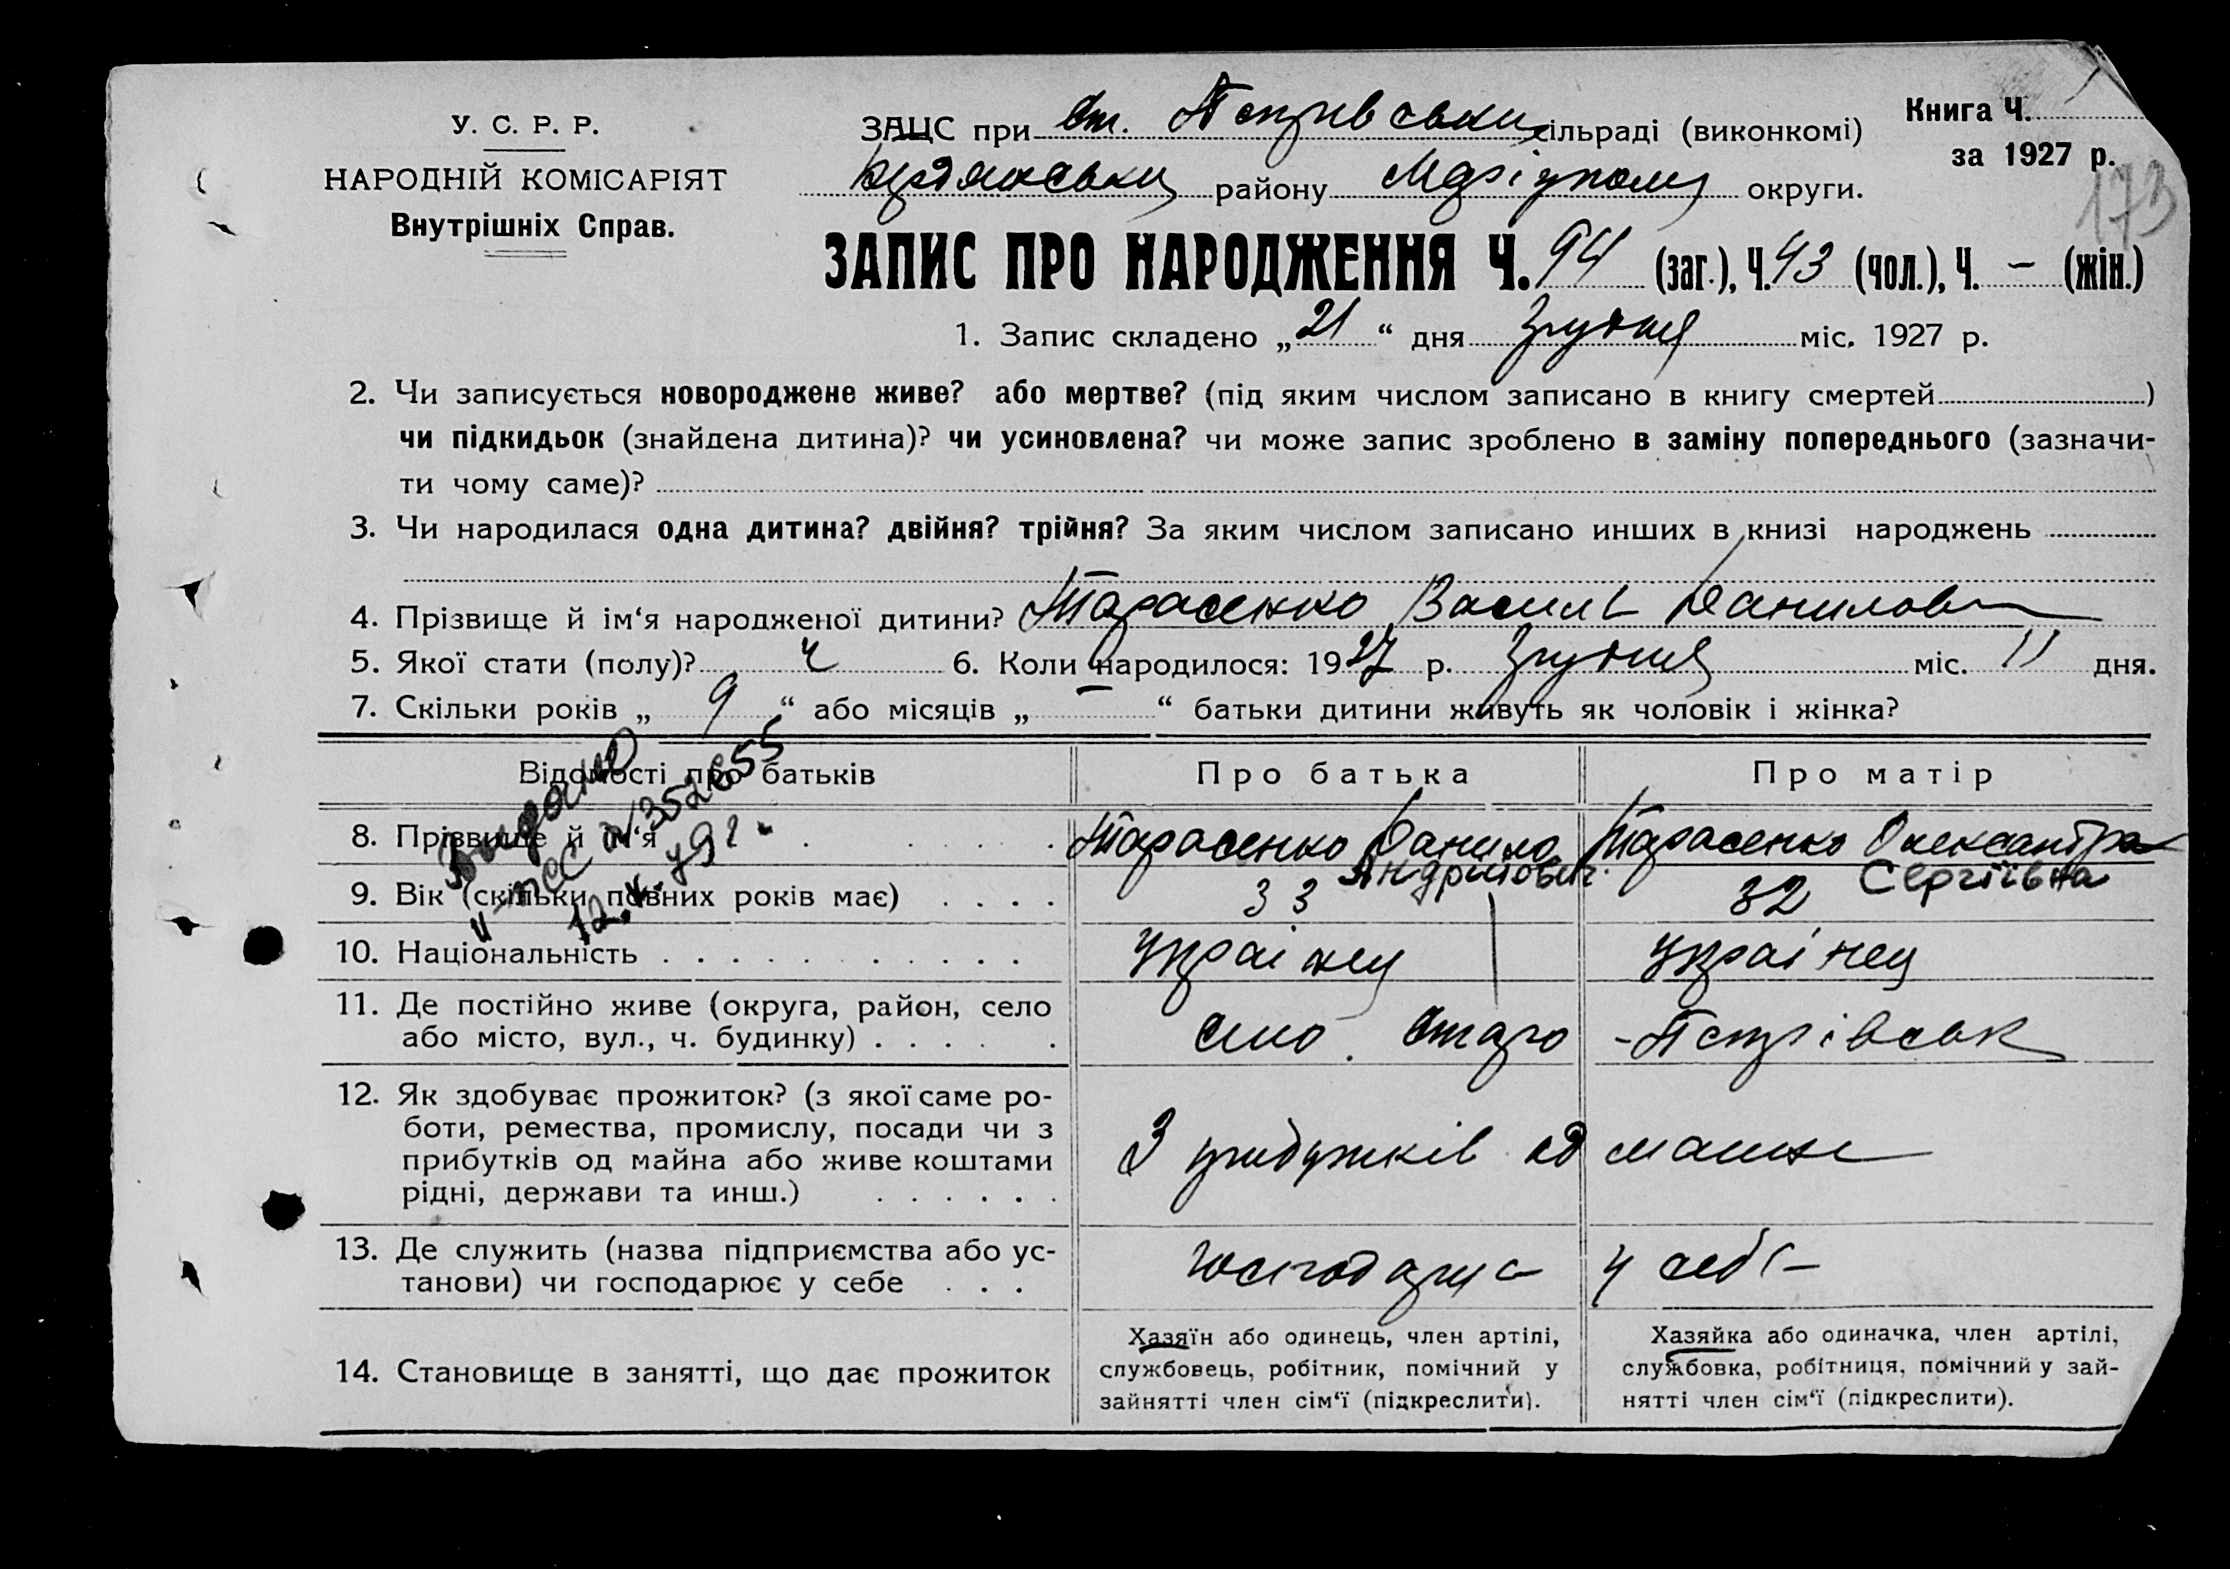 У. С. Р. Р.
НАРОДНІЙ КОМІСАРІЯТ
Внутрішніх Справ.
Книга Ч.
за 1927 р.
173
ЗАЦС при Ст. Петрівськи сільраді (виконкомі)
Бердянськ району Маріупол округи.
ЗАПИС ПРО НАРОДЖЕННЯ Ч. 94 (заг.), Ч. 43 (чол.), Ч. – (жін.)
1. Запис складено „ 21 “ дня грудня міс. 1927 р.
2. Чи записується новороджене живе? або мертве? (під яким числом записано в книгу смертей )
чи підкидьок (знайдена дитина)? чи усиновлена? чи може запис зроблено в заміну попереднього (зазначи-
ти чому саме)?
3. Чи народилася одна дитина? двійня? трійня? За яким числом записано инших в книзі народжень
4. Прізвище й ім‘я народженої дитини? Тарасенко Василь Данилов
5. Якої стати (полу)? ч 6. Коли народилося: 1927 р. грудня міс. 11 дня.
7. Скільки років „ 9 “ або місяців „ – “ батьки дитини живуть як чоловік і жінка?
Відомості про батьків Про батька Про матір
Видано
№ 352655
12. 79г.
8. Прізвище й ім‘я Тарасенко Данило Андрійович. Тарасенко Олександра Сергіївна
9. Вік (скільки повних років має) 33 32
10. Національність українец українец
11. Де постійно живе (округа, район, село
або місто, вул., ч. будинку) село Старо -Петрівськ
12. Як здобуває прожиток? (з якої саме ро-
боти, ремества, промислу, посади чи з
прибутків од майна або живе коштами
рідні, держави та инш.) З прибутків од майна
13. Де служить (назва підприємства або ус-
танови) чи господарює у себе господарує у себе
14. Становище в занятті, що дає прожиток
Хазяїн або одинець, член артілі,
службовець, робітник, помічний у
зайнятті член сім‘ї (підкреслити).
Хазяйка або одиначка, член артілі,
службовка, робітниця, помічний у зай-
нятті член сім‘ї (підкреслити).